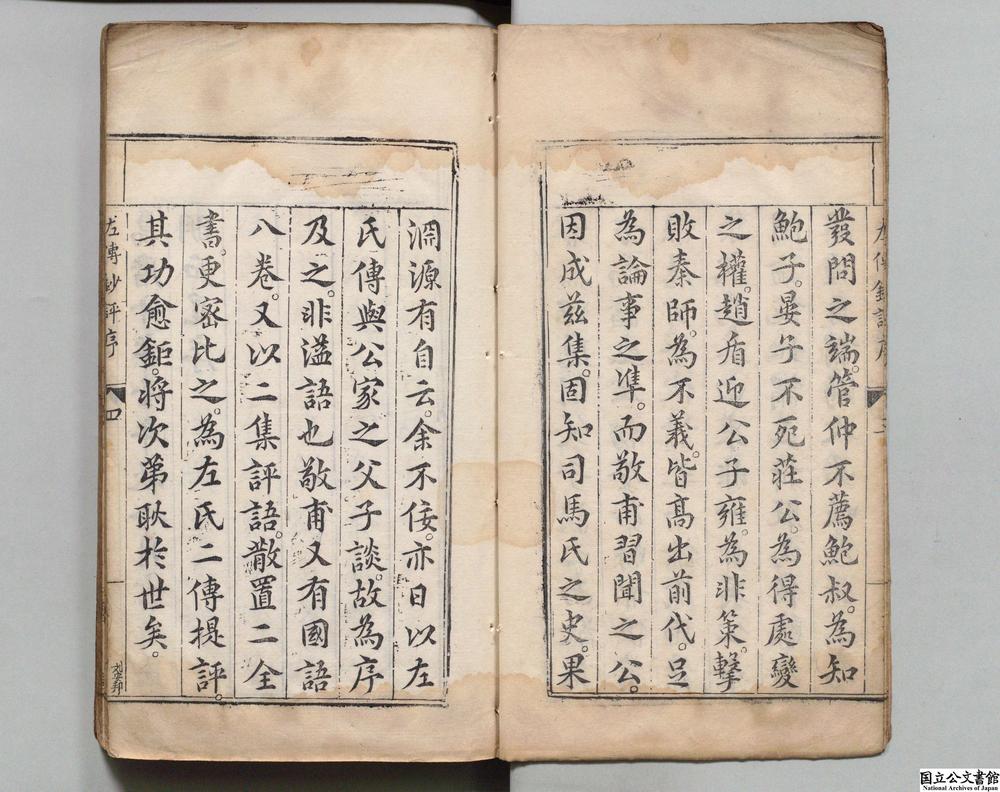 發問之端。管仲不薦鮑叔。為知
鮑子。晏子不死莊公。為得處變
之權。趙盾迎公子雍。為非策。擊
敗秦師。為不義。皆高出前代。足
為論事之準。而敬甫習聞之公。
因成茲集。固知司馬氏之史。果
淵源有自云。余不佞。亦日以左
氏傳與公家之父子談。故為序
及之。非溢語也敬甫又有國語
八卷。又以二集評語。散置二全
書。更密比之。為左氏二傳提評。
其功愈鉅。將次第耿於世矣。
左傳鈔評序
四
国立公文書館
National Archives of Japan